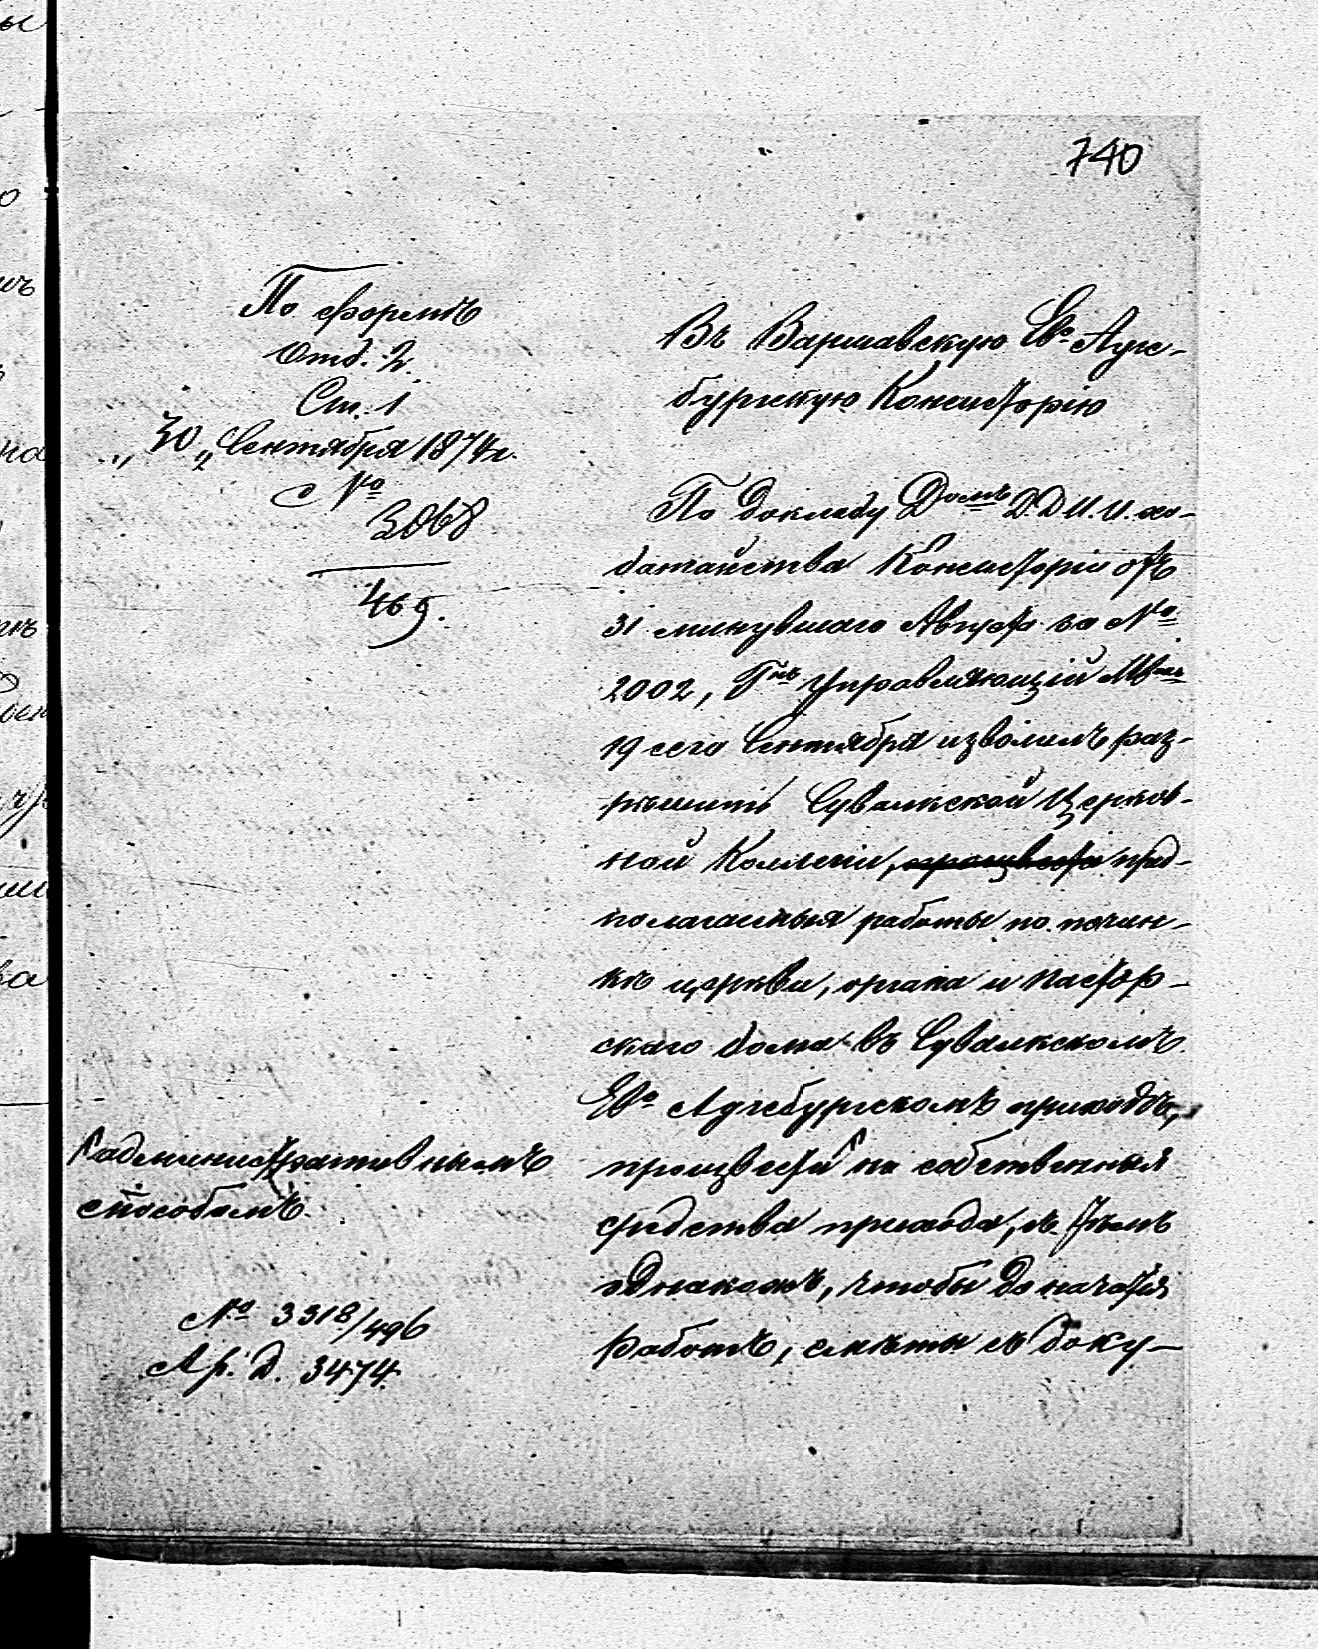 740
По формѣ
Отд. 2.
Ст. 1
„30„ Сентября 1874 г.
№
3068
469.
Въ Варшавскую Ев⁰ Аугс-
бургскую Консисторію
По докладу Д.Д.И.И. хо-
датайства Консисторіи отъ
31 минувшаго Августа за №
2002, Гнъ Управляющій Мвмъ
19 сего Сентября изволилъ раз-
рѣшить Сувалкской Церков-
ной Коллегіи, произвести пред-
полагаемыя работы по почин-
кѣ церкви, органа и пастор-
скаго дома въ Сувалкскомъ
Ев⁰ Аугсбургскомъ приходѣ,
произвести на собственныя
средства прихода, съ тѣмъ
однакожъ, чтобы до начатія
работъ, смѣты съ доку-
административнымъ
способомъ.
№ 3318/496
Ар. д. 3474